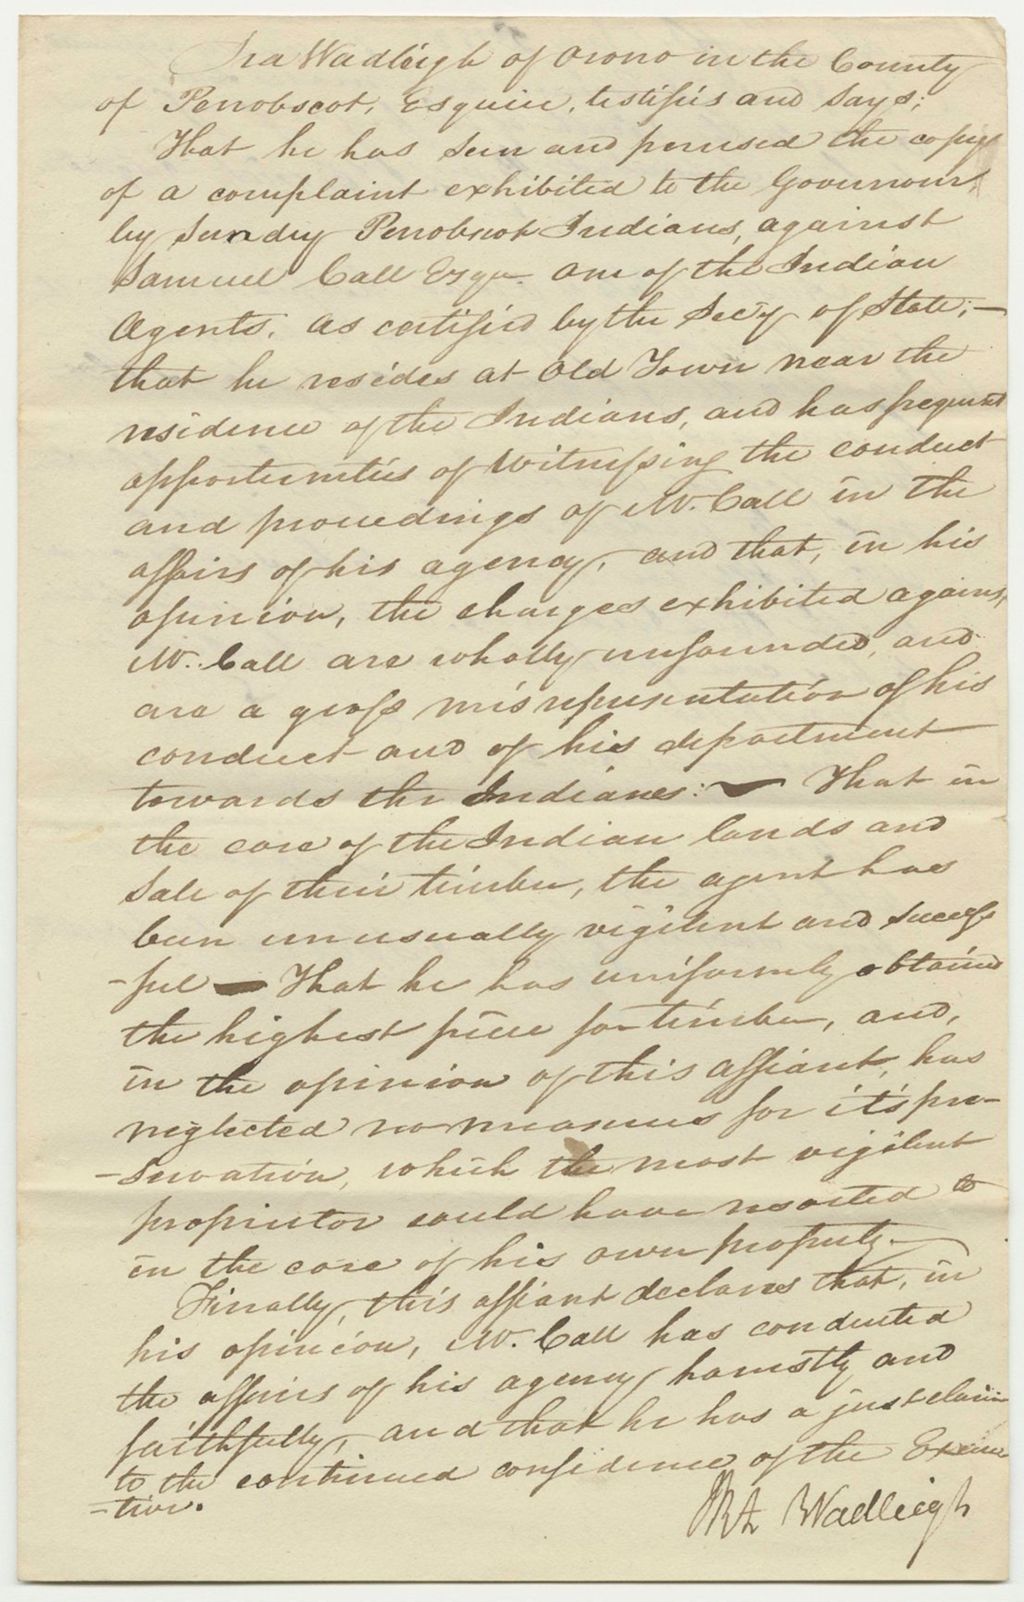 Ira Wadleigh of Orono in the County
of Penobscot, Esquire, testifies and says;
That he has seen and perused the copy
of a complaint exhibited to the Governour,
by Sundry Penobscot Indians, against
Samuel Call Esqr. One of the Indian
Agents, as certified by the Secy of State; —
that he resides at Old Town near the
residence of the Indians, and has frequent
opportunities of Witnessing the conduct
and proceedings of Mr. Call in the
affairs of his agency, and that, in his
opinion, the charges exhibited against
Mr. Call are wholly unfounded, and
are a gross misrepresentation of his
conduct and of his department
towards the Indians: — That in
the care of the Indian lands and
Sale of their timber, the agent has
been unusually vigilent and success
-ful — That he has uniformly obtained
the highest price for timber, and,
in the opinion of this affiant, has
neglected no measures for it's pre-
-servation, which the most vigilent
proprietor could have resorted to
in the care of his own property. —
Finally, this affiant declares that, in
his opinion, Mr. Call has conducted
the affairs of his agency honestly and
faithfully, and that he has a just claim
to the continued confidence of the Execu
-tive.
Ira Wadleigh